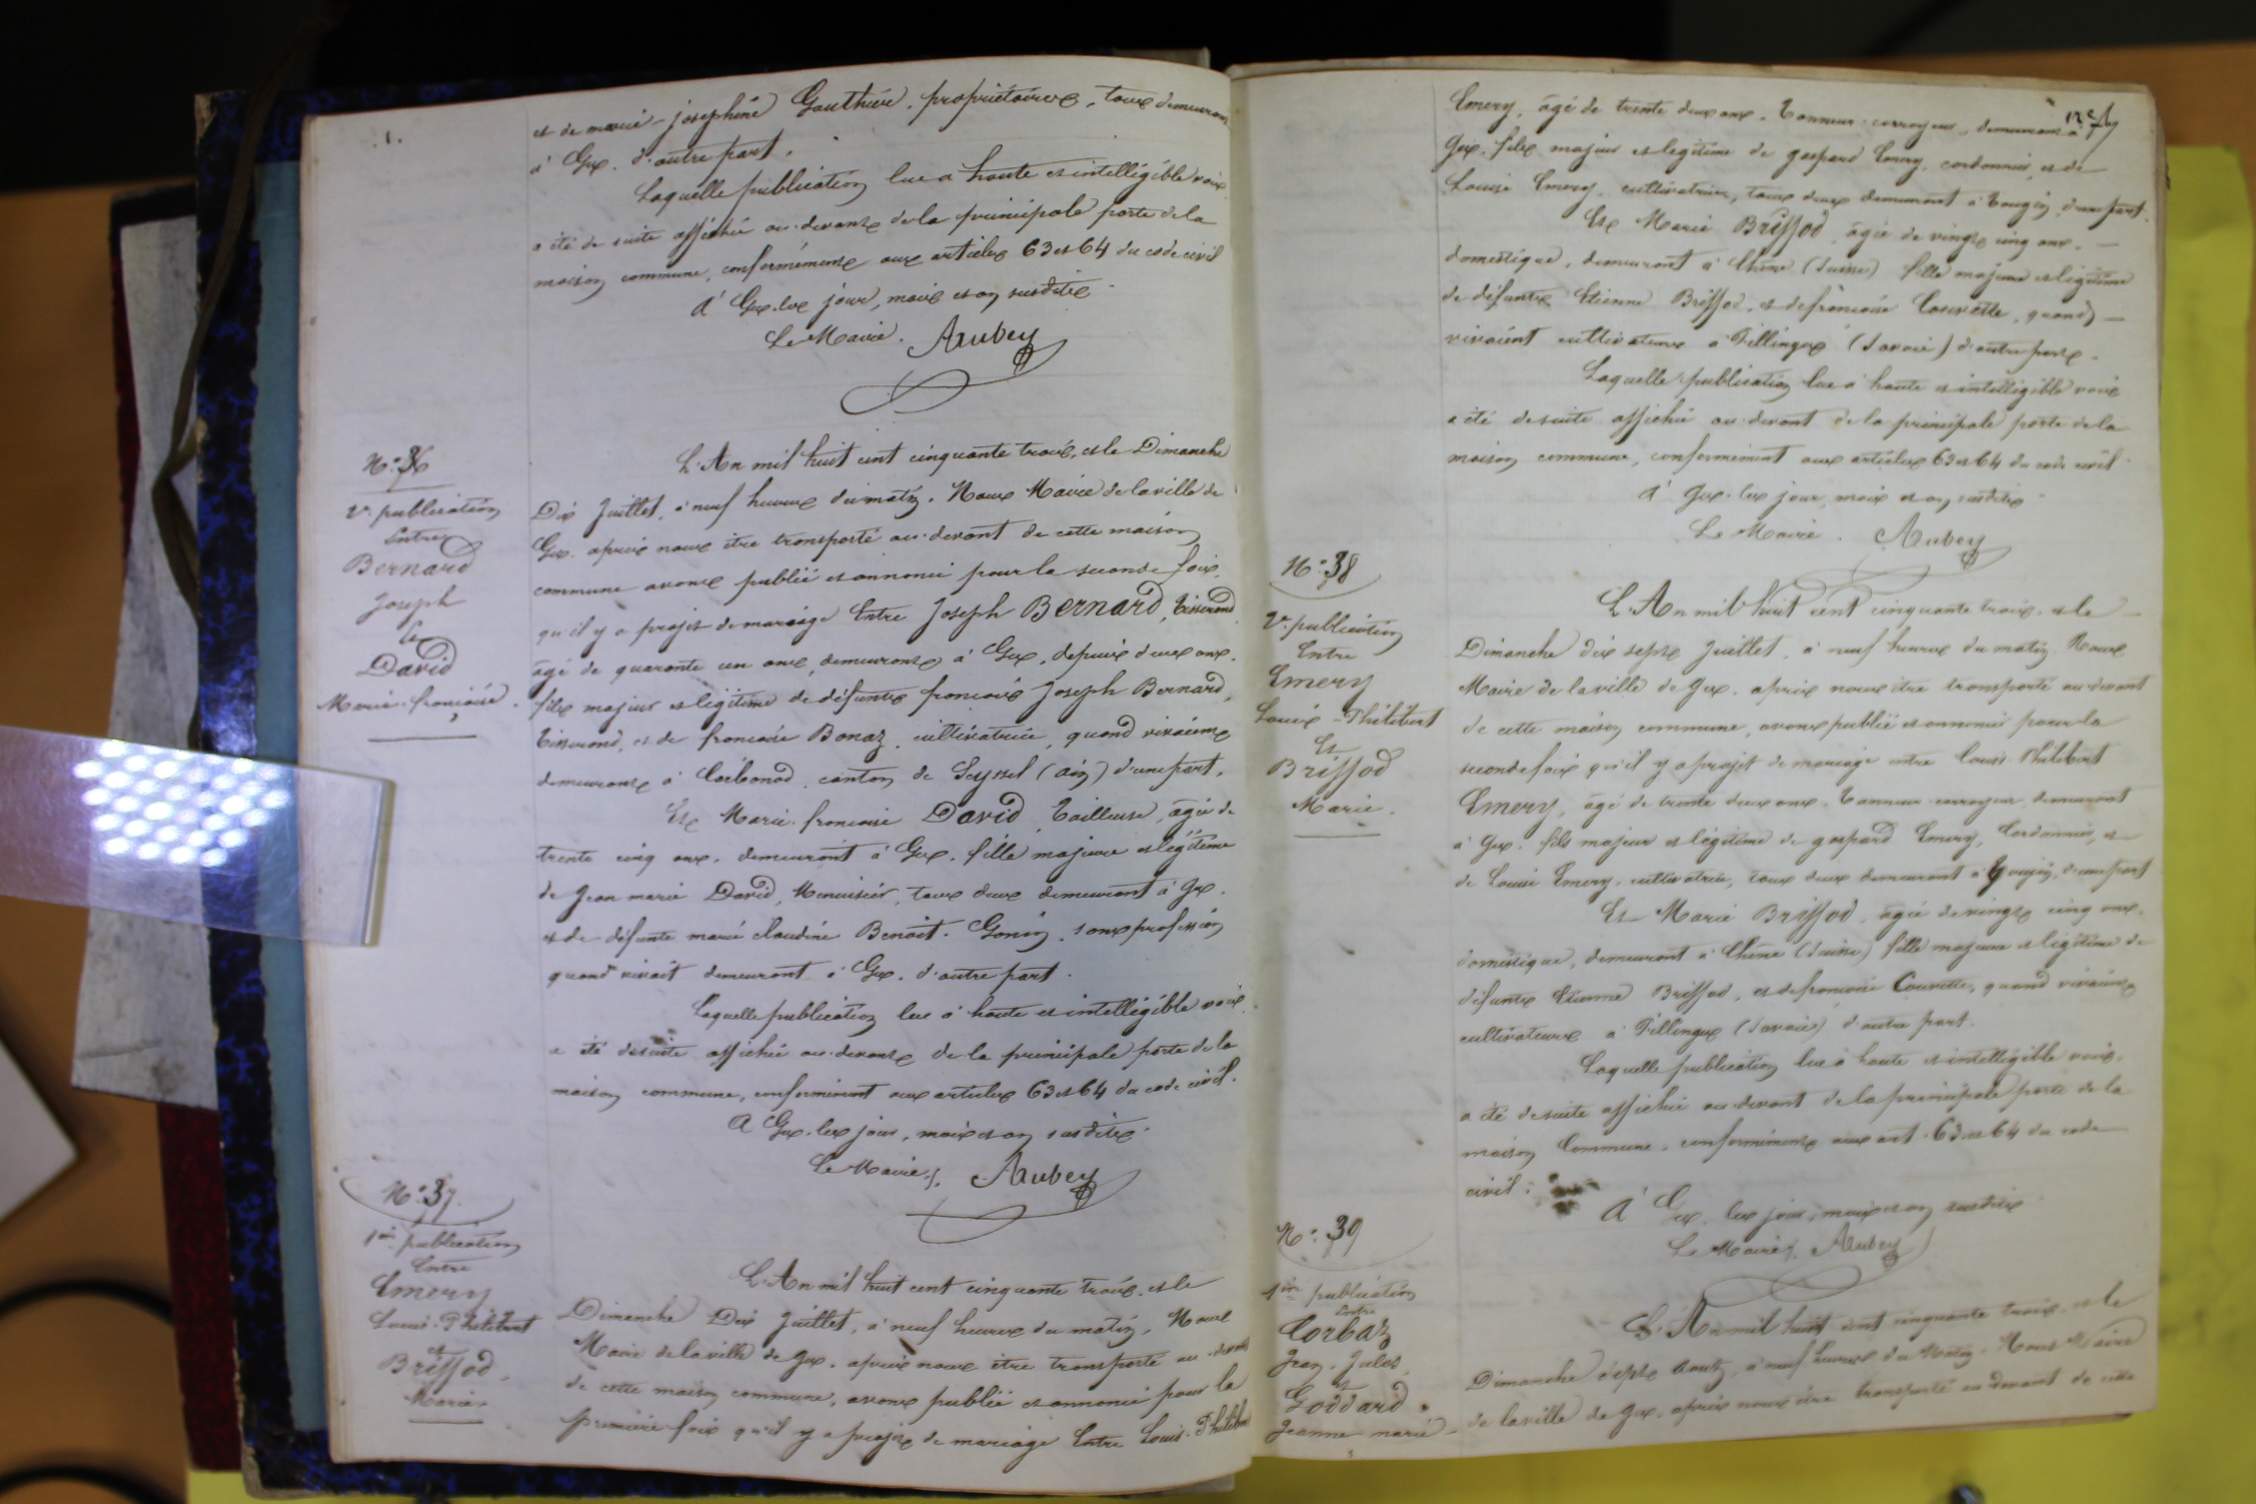 et de marie-joséphine Gauthier, propriétaires, tous demeurans
à Gex, d'autre part.
Laquelle publication lue a haute et intelligible voix
a été de suite affichée au-devant de la principale porte de la
maison commune, conformément aux articles 63 et 64 du code civil
A Gex les jour, mois et an susdits
Le Maire. Aubey
N° 36
2e publication
Entre
Bernard
Joseph
Et
David
Marie-françoise.
L'An mil huit cent cinquante trois, et le Dimanche
Dix Juillet, à neuf heures du matin, Nous Maire de la ville de
Gex, après nous être transporté au-devant de cette maison
commune avons publié et annoncé pour la seconde fois
qu'il y a projet de mariage Entre Joseph Bernard, Tisserand
âgé de quarante un ans, demeurant à Gex, depuis deux ans,
fils majeur et légitime de défunts françois Joseph Bernard,
Tisserand, et de françoise Bonaz, cultivatrice, quand vivaient
demeurans à Corbonod, canton de Seyssel (ain) d'une part,
Et Marie-françoise David, Tailleuse, âgée de
trente cinq ans, demeurant à Gex, fille majeure et légitime
de Jean marie David, Menuisier, tous deux demeurant à Gex,
et de défunte marie claudine Benoit-Gonin, sans profession
quand vivait demeurant à Gex, d'autre part.
Laquelle publication lue à haute et intelligible voix
a été de suite affichée au-devant de la principale porte de la
maison commune, conformément aux articles 63 et 64 du code civil.
A Gex les jour, mois et an susdits
Le Maire, Aubey
N° 37
1ère publication
Entre
Emery
Louis-Philibert
et
Briffod
Marie
L'An mil huit cent cinquante trois, et le
Dimanche Dix Juillet, à neuf heures du matin, Nous
Maire de la ville de Gex, après nous être transporté au-devant
de cette maison commune, avons publié et annoncé pour la
première fois qu'il y a projet de mariage Entre Louis-Philibert
Emery, âgé de trente deux ans, Tanneur-corroyeur, demeurant à
Gex, fils majeur et légitime de gaspard Emery, cordonnier, et de
Louise Emery, cultivatrice, tous deux demeurant à Tougin, d'une part.
Et Marie Briffod, âgée de vingt cinq ans,
domestique, demeurant à Chêne (Suisse) fille majeure et légitime
de défunts Etienne Briffod, et de françoise Couvette, quand
vivaient cultivateurs à Fillinges (Savoie) d'autre part.
Laquelle publication lue à haute et intelligible voix
a été de suite affichée au-devant de la principale porte de la
maison commune, conformément aux articles 63 et 64 du code civil
A Gex les jour, mois et an susdits
Le Maire. Aubey
N° 38
2e publication
Entre
Emery
Louis-Philibert
Et
Briffod
Marie.
L'An mil huit cent cinquante trois, et le
Dimanche dix sept Juillet, à neuf heures du matin Nous
Maire de la ville de Gex, après nous être transporté au-devant
de cette maison commune, avons publié et annoncé pour la
seconde fois qu'il y a projet de mariage entre Louis Philibert
Emery, âgé de trente deux ans, Tanneur-corroyeur, demeurant
à Gex, fils majeur et légitime de gaspard Emery, Cordonnier, et
de Louise Emery, cultivatrice, tous deux demeurant à Tougin, d'une part
Et Marie Briffod, âgée de vingt cinq ans,
domestique, demeurant à Chêne (Suisse) fille majeure et légitime de
défunts Etienne Briffod, et de françoise Couvette, quand vivaient
cultivateurs à Fillinges (Savoie) d'autre part.
Laquelle publication lue à haute et intelligible voix,
a été de suite affichée au-devant de la principale porte de la
maison Commune, conformément aux art. 63 et 64 du code
civil.
A Gex, les jour, mois et an susdits
Le Maire, Aubey
N° 39
1ère publication
Entre
Corbaz
Jean-Jules
et
Goddard
Jeanne marie
L'An mil huit cent cinquante trois et le
Dimanche sept Août, à neuf heures du Matin, Nous Maire
de la ville de Gex, après nous être transporté au devant de cette